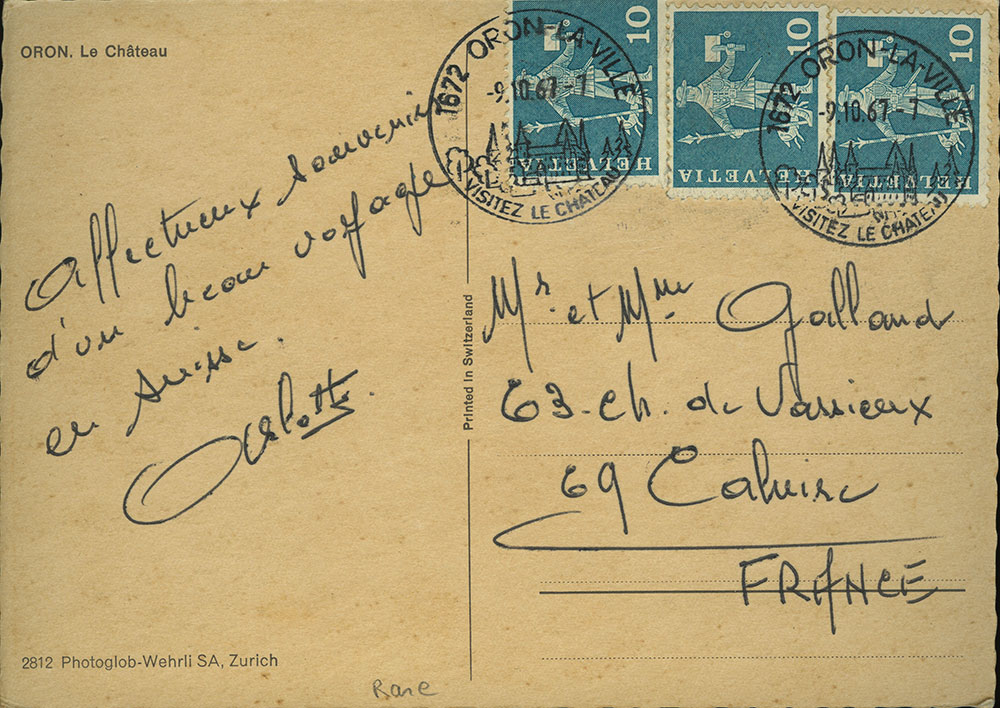 ORON. Le Château
1672 ORON-LA-VILLE
-9.10.67-7
VISITEZ LE CHATEAU
10
HELVETIA
10
HELVETIA
10
HELVETIA
1672 ORON-LA-VILLE
-9.10.67-7
VISITEZ LE CHATEAU
Affectueux souvenir
d'un beau voyage
en Suisse.
Printed in Switzerland
Mr. et Mme Galland
63. ch. de Vassieux
69 Caluire
FRANCE
2812 Photoglob-Wehrli SA, Zurich
Rare